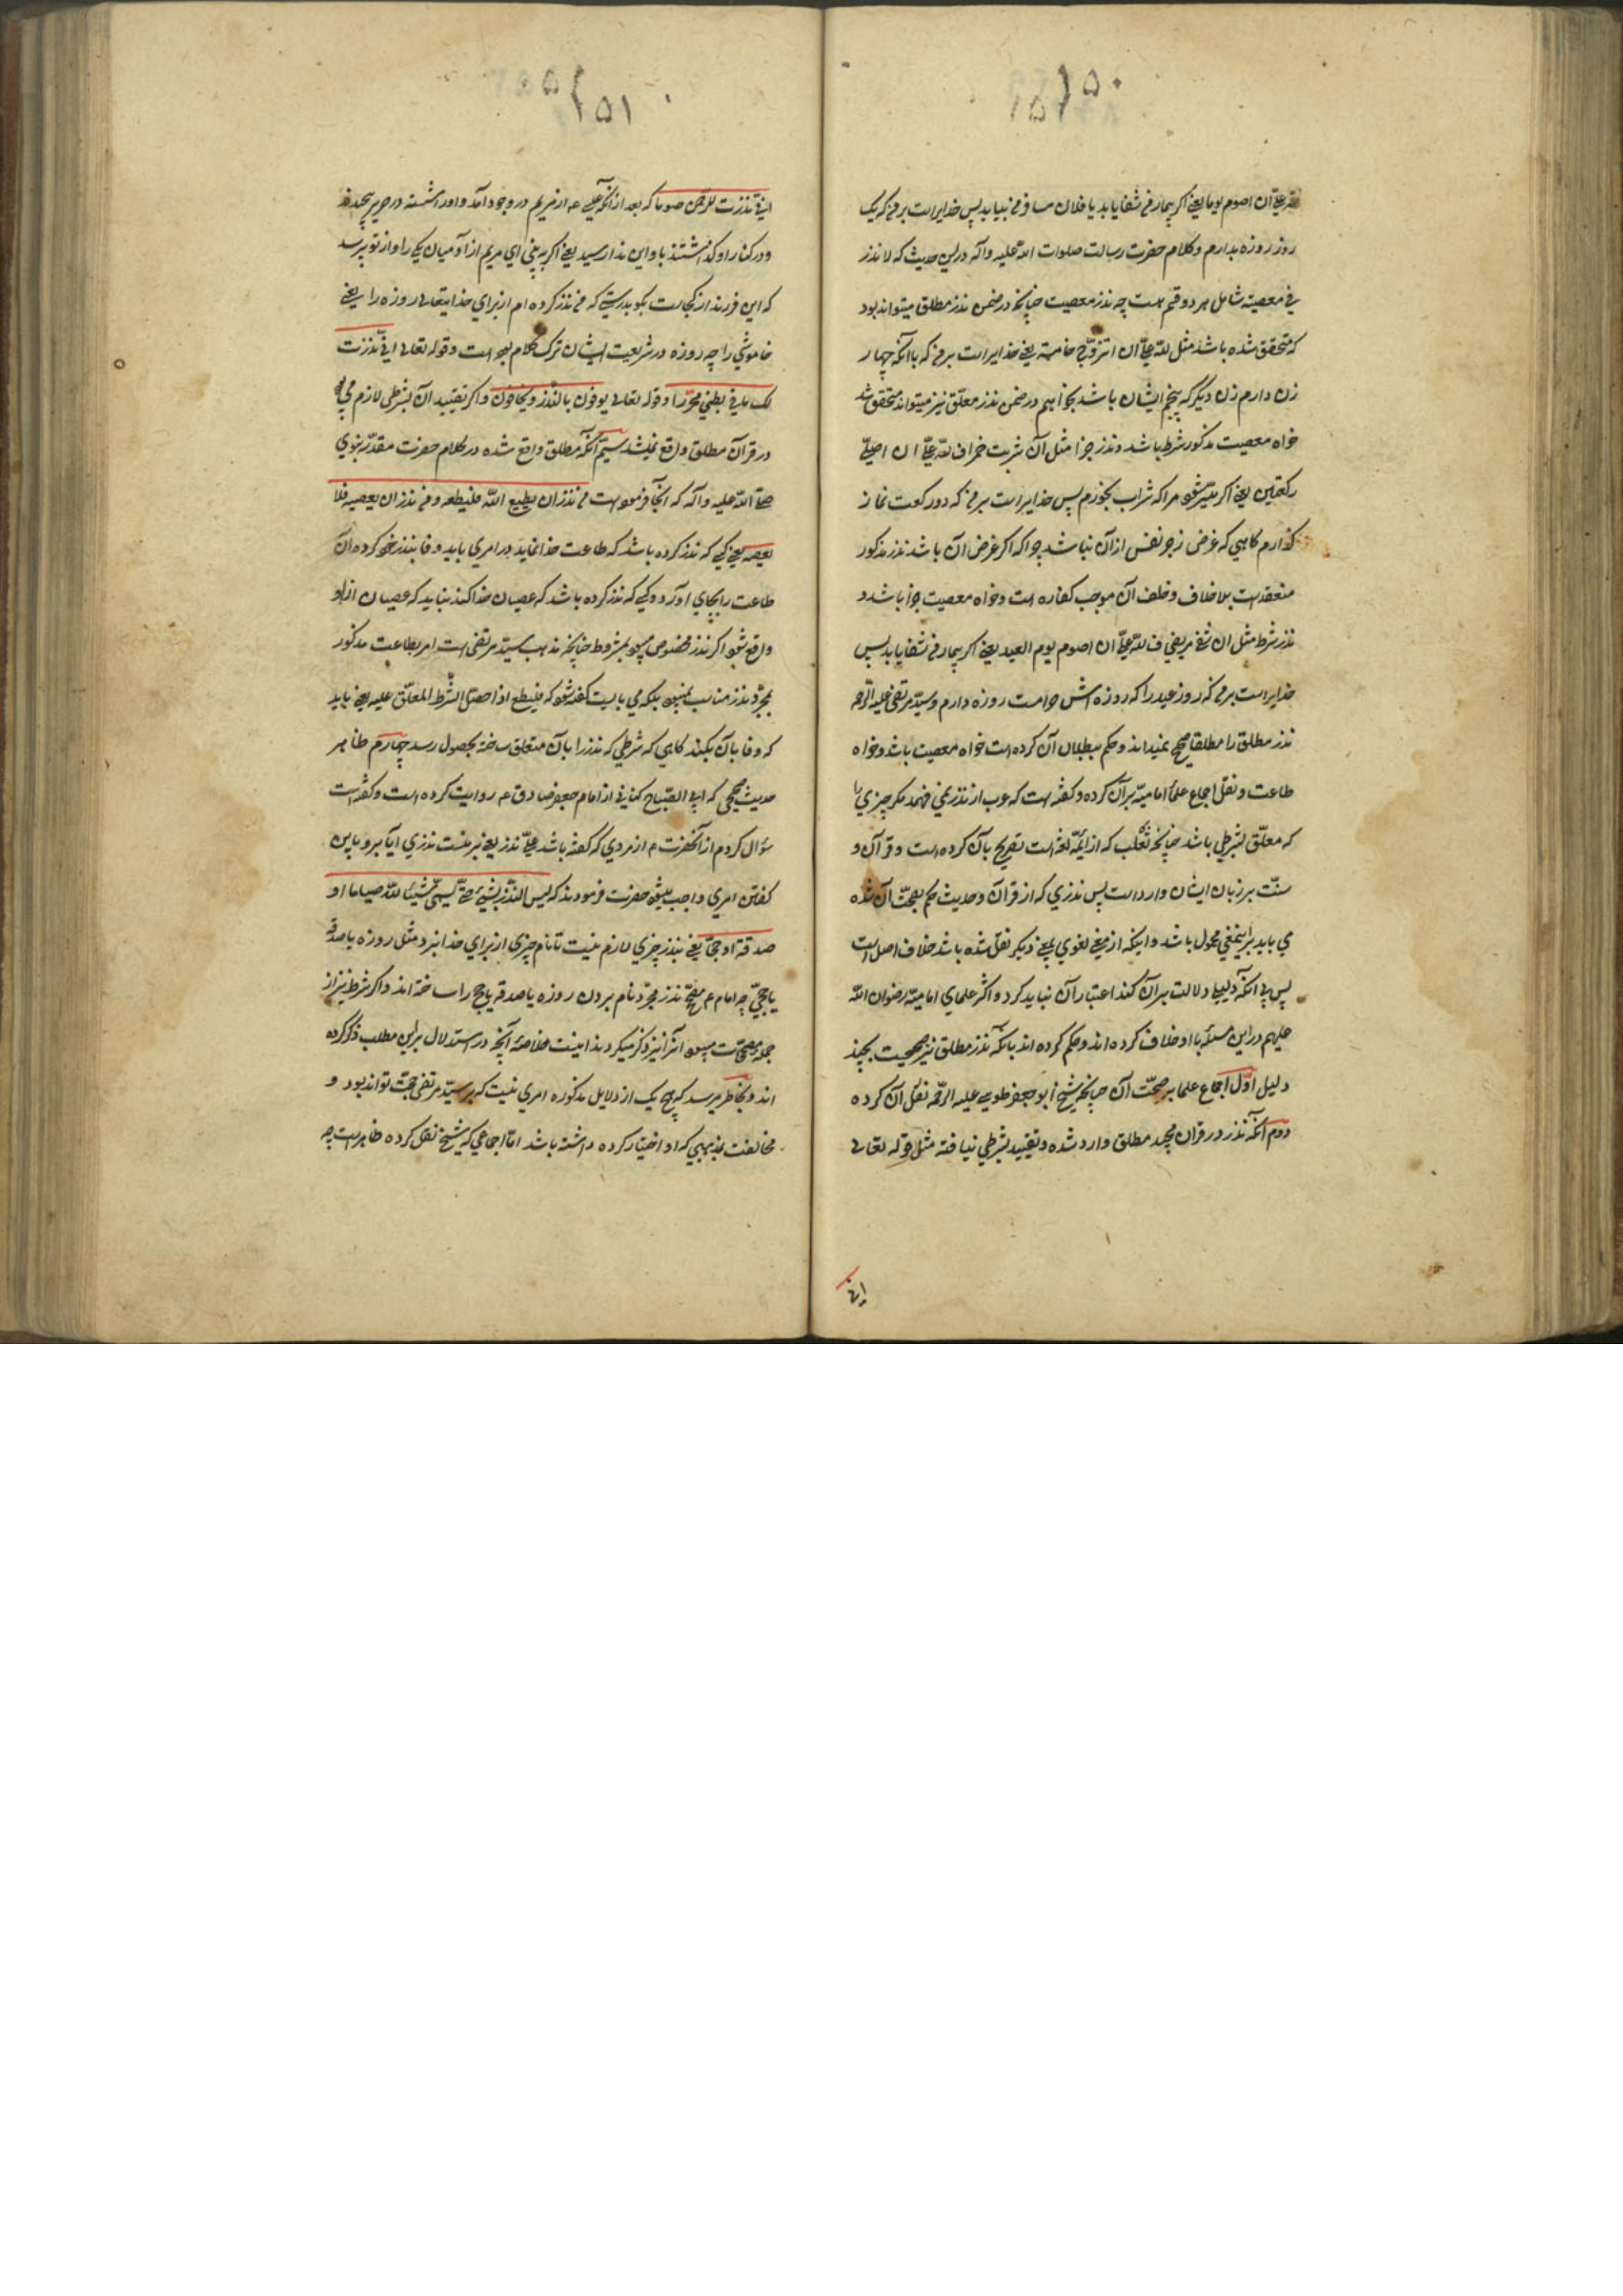 ۱۵۰
فللّه علیّ ان اصوم یوما یعنی اگر بیمار من شفا یابد یا فلان مسافر من بیاید پس خدایراست بر من که یک
روز روزه بدارم و کلام حضرت رسالت صلوات الله علیه وآله درین حدیث که لا نذر
فی معصیة شامل هر دو قسم است چه نذر معصیت چنانچه در ضمن نذر مطلق میتواند بود
که متحقق شده باشد مثل للّه علیّ ان اتزوّج خامسة یعنی خدایراست بر من که با آنکه چهار
زن دارم زن دیگر که پنجم ایشان باشد بخواهم در ضمن نذر معلّق نیز میتواند متحقق شد
خواه معصیت مذکور شرط باشد و نذر جزا مثل ان شربت خمرا فللّه علیّ ان اصلّی
رکعتین یعنی اگر میسّر شود مرا که شراب بخورم پس خدایراست بر من که دو رکعت نماز
گذارم گاهی که غرض زجر نفس از آن نباشد چراکه اگر غرض آن باشد نذر مذکور
منعقدست بلا خلاف و خلف آن موجب کفاره است و خواه معصیت جزا باشد و
نذر شرط مثل ان شفی مریضی فللّه علیّ ان اصوم یوم العید یعنی اگر بیمار من شفا یابد پس
خدایراست بر من که روز عید را که روزه اش حرامست روزه دارم و سیّد مرتضی علیه الرّحمه
نذر مطلق را مطلقا صحیح نمیداند و حکم ببطلان آن کرده است خواه معصیت باشد و خواه
طاعت و نقل اجماع علماء امامیّه بر آن کرده و گفته است که عرب از نذر نمی فهمد مگر چیزی را
که معلّق بشرطی باشد چنانچه ثعلب که از ائمّه لغتست تصریح بآن کرده است و قرآن و
سنّت بر زبان ایشان وارد است پس نذری که از قرآن و حدیث حکم بصحّت آن شده
می باید بر اینمعنی محمول باشد و اینکه از معنی لغوی بمعنی دیگر نقل شده باشد خلاف اصل است
پس بی آنکه دلیلی دلالت بر آن کند اعتبار آن نباید کرد و اکثر علمای امامیّه رضوان الله
علیهم در این مسئله با او خلاف کرده اند و حکم کرده اند بآنکه نذر مطلق نیز صحیحست بچند
دلیل اوّل اجماع علما بر صحّت آن چنانچه شیخ ابو جعفر طوسی علیه الرحمّه نقل آن کرده
دوم آنکه نذر در قران مجید مطلق وارد شده و تقیید بشرطی نیافته مثل قوله تعالی
انی
۱۵۱
انی نذرت للرّحمن صوما که بعد از آنکه عیسی ع از مریم در وجود آمد و او را شسته در حریر پیچیدند
و در کنار او گذاشتند باو این ندا رسید یعنی اگر به بینی ای مریم از آدمیان یکی را و از تو پرسد
که این فرزند از کجاست بگو بدرستی که من نذر کرده ام از برای خدایتعالی روزه را یعنی
خاموشی را چه روزه در شریعت ایشان ترک کلام بوده است و قوله تعالی انّی نذرت
لک ما فی بطنی محرّرا و قوله تعالی یوفون بالنّذر و یخافون و اگر تقیید آن بشرطی لازم می بود
در قرآن مطلق واقع نمیشد سیّم آنکه مطلق واقع شده در کلام حضرت مقدّسه نبوی
صلّی الله علیه وآله که آنجا فرموده است من نذر ان یطیع اللّه فلیطعه و من نذر ان یعصیه فلا
یعصه یعنی کسی که نذر کرده باشد که طاعت خدا نماید در امری باید وفا بنذر خود کرده آن
طاعت را بجای آورد و کسی که نذر کرده باشد که عصیان خدا کند نباید که عصیان از او
واقع شود اگر نذر مخصوص میبود بمشروط چنانچه مذهب سیّد مرتضی است امر بطاعت مذکور
بمجرّد نذر مناسب نمیبود بلکه می بایست گفته شود که فلیطع اذا حصل الشّرط المعلّق علیه یعنی باید
که وفا بآن بکند گاهی که شرطی که نذر را بآن متعلق ساخته بحصول رسد چهارم ظاهر
حدیث صحیحی که ابی الصّباح کنانی از امام جعفر صادق ع روایت کرده است و گفته است
سؤال کردم از آنحضرت ع از مردی که گفته باشد علیّ نذر یعنی بر منست نذری آیا بر او باین
گفتن امری واجب میشود حضرت فرمودند که لیس النّذر بشیء حتّی یسمّی شیئا للّه صیاما او
صدقة او حجّا یعنی بنذر چیزی لازم نیست تا نام چیزی از برای خدا نبرد مثل روزه یا صدقه
یا حجّ چه امام ع مصحّح نذر مجرّد نام بردن روزه یا صدقه یا حج را ساخته اند و اگر شرط نیز از
جمله مصحّحات میبود آنرا نیز ذکر میکردند اینست خلاصه آنچه در استدلال بر این مطلب ذکر کرده
اند و بخاطر میرسد که هیچ یک از دلایل مذکوره امری نیست که بر سیّد مرتضی حجّت تواند بود و
مخالفت مذهبی که او اختیار کرده داشته باشد امّا اجماعی که شیخ نقل کرده ظاهرست چه